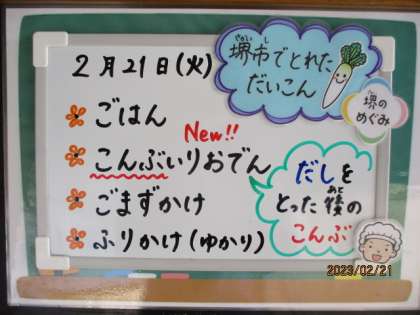 2月21日(火)
堺市でとれた
だいこん
堺の
めぐみ
ごはん
New!!
こんぶいりおでん
ごまずかけ
ふりかけ(ゆかり)
だしを
とった後の
あと
こんぶ
2023/02/21